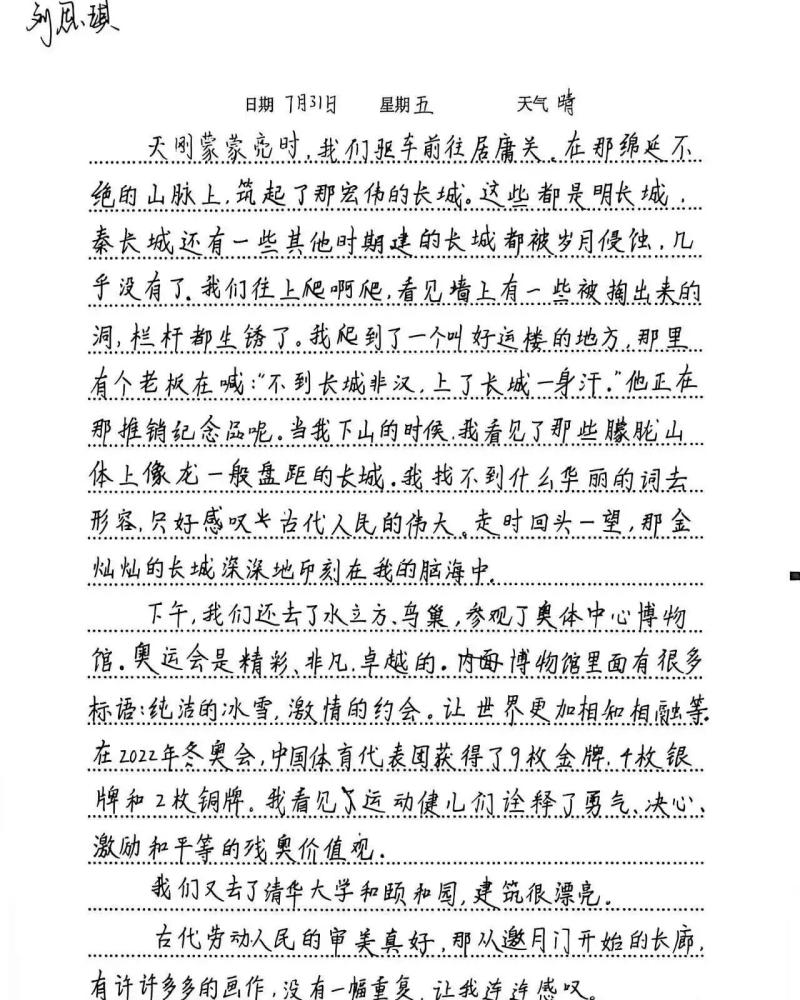 刘思琪
日期 7月31日 星期五 天气 晴
天刚蒙蒙亮时,我们驱车前往居庸关。在那绵延不
绝的山脉上,筑起了那宏伟的长城。这些都是明长城,
秦长城还有一些其他时期建的长城都被岁月侵蚀,几
乎没有了。我们往上爬啊爬,看见墙上有一些被掏出来的
洞,栏杆都生锈了。我爬到了一个叫好运楼的地方,那里
有个老板在喊:“不到长城非汉,上了长城一身汗。”他正在
那推销纪念品呢。当我下山的时候,我看见了那些朦胧山
体上像龙一般盘距的长城。我找不到什么华丽的词去
形容,只好感叹古代人民的伟大。走时回头一望,那金
灿灿的长城深深地印刻在我的脑海中。
下午,我们还去了水立方、鸟巢,参观了奥体中心博物
馆。奥运会是精彩、非凡、卓越的。博物馆里面有很多
标语:纯洁的冰雪,激情的约会。让世界更加相知相融等。
在2022年冬奥会,中国体育代表团获得了9枚金牌,4枚银
牌和2枚铜牌。我看见了运动健儿们诠释了勇气、决心、
激励和平等的残奥价值观。
我们又去了清华大学和颐和园,建筑很漂亮。
古代劳动人民的审美真好,那从邀月门开始的长廊,
有许许多多的画作,没有一幅重复,让我连连感叹。